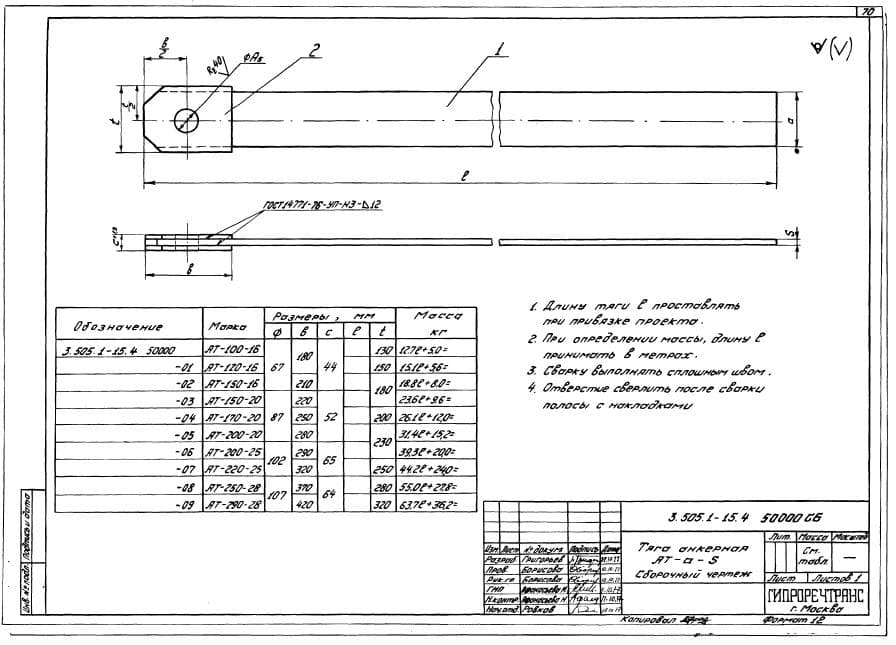 70
в/2
Rz40
ФА5
2
1
√(√)
t/2
t
а
ℓ
ГОСТ 14771-76-УП-Н3-Δ12
с
S
в
Обозначение Марка Размеры, мм Масса кг
ф в с ℓ t
3.505.1-15.4 50000 АТ-100-16 67 180 44 130 12.7ℓ+5.0=
-01 АТ-120-16 150 15.1ℓ+5.6=
-02 АТ-150-16 210 180 18.8ℓ+8.0=
-03 АТ-150-20 87 220 52 23.6ℓ+9.6=
-04 АТ-170-20 250 200 26.1ℓ+12.0=
-05 АТ-200-20 280 230 31.4ℓ+15.2=
-06 АТ-200-25 102 290 65 39.3ℓ+20.0=
-07 АТ-220-25 320 250 44.2ℓ+24.0=
-08 АТ-250-28 107 370 64 280 55.0ℓ+27.8=
-09 АТ-290-28 420 320 63.7ℓ+36.2=
1. Длину тяги ℓ проставлять
при привязке проекта.
2. При определении массы, длину ℓ
принимать в метрах.
3. Сварку выполнять сплошным швом.
4. Отверстие сверлить после сварки
полосы с накладками
3.505.1-15.4 50000 СБ
Тяга анкерная
АТ-а-S
Сборочный чертеж
Лит. Масса Масштаб
См. табл. —
Лист Листов 1
ГИПРОРЕЧТРАНС
г. Москва
Изм. Лист № докум. Подпись Дата
Разраб. Григорьев
Пров. Борисова
Рук. гр. Борисова
ГИП Афонасьева Н.
Н.контр. Афонасьева Н.
Нач.отд. Ровков
Инв. № подл. Подпись и дата
Копировал
Формат 12